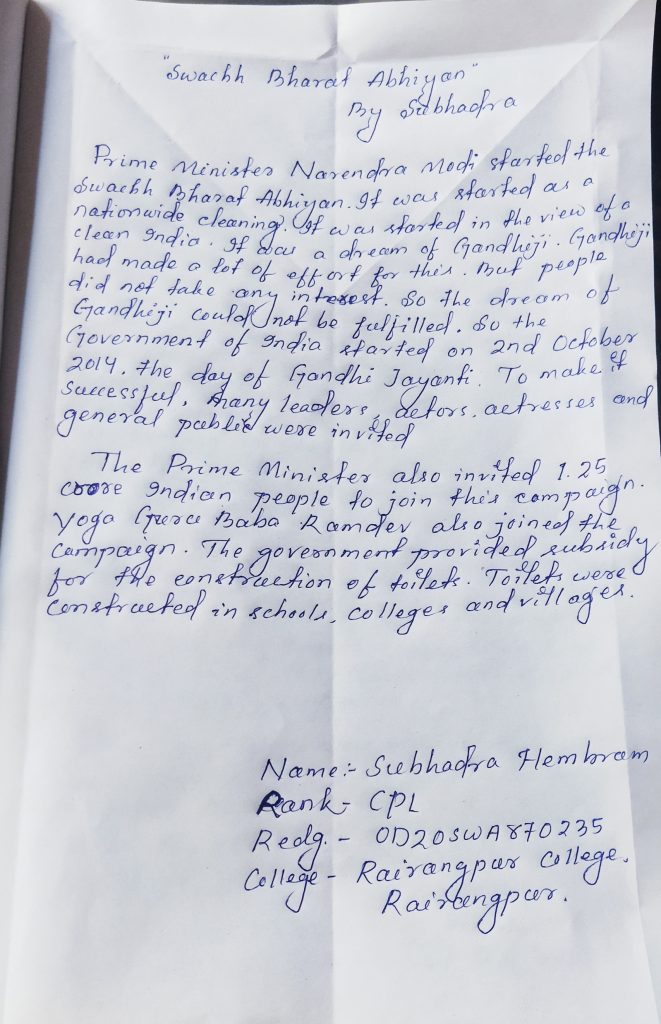 "Swachh Bharat Abhiyan"
By Subhadra
Prime Minister Narendra Modi started the
Swachh Bharat Abhiyan. It was started as a
nationwide cleaning. It was started in the view of a
clean India. It was a dream of Gandhiji. Gandhiji
had made a lot of effort for this. But people
did not take any interest. So the dream of
Gandhiji could not be fulfilled. So the
Government of India started on 2nd October
2014, the day of Gandhi Jayanti. To make it
successful, many leaders, actors, actresses and
general public were invited
The Prime Minister also invited 1.25
crore Indian people to join this campaign.
Yoga Guru Baba Ramdev also joined the
campaign. The government provided subsidy
for the construction of toilets. Toilets were
constructed in schools, colleges and villages.
Name:- Subhadra Hembram
Rank- CPL
Redg. - OD20SWA870235
College - Rairangpur College,
Rairangpur.